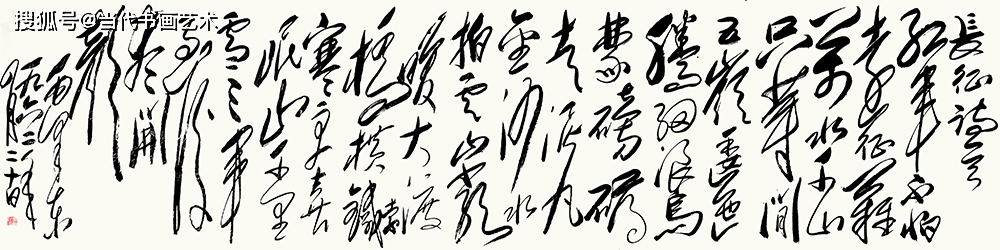 搜狐号@当代书画艺术
長征詩一首
紅軍不怕
遠征難
萬水千山
只等閒
五嶺逶迤
騰細浪烏
蒙磅礴
走泥丸
金沙水
拍雲崖
暖大渡
橋橫鐵索
寒更喜
岷山千里
雪三軍
過後
盡開
顏
毛澤東
一九六二年
四月二十日